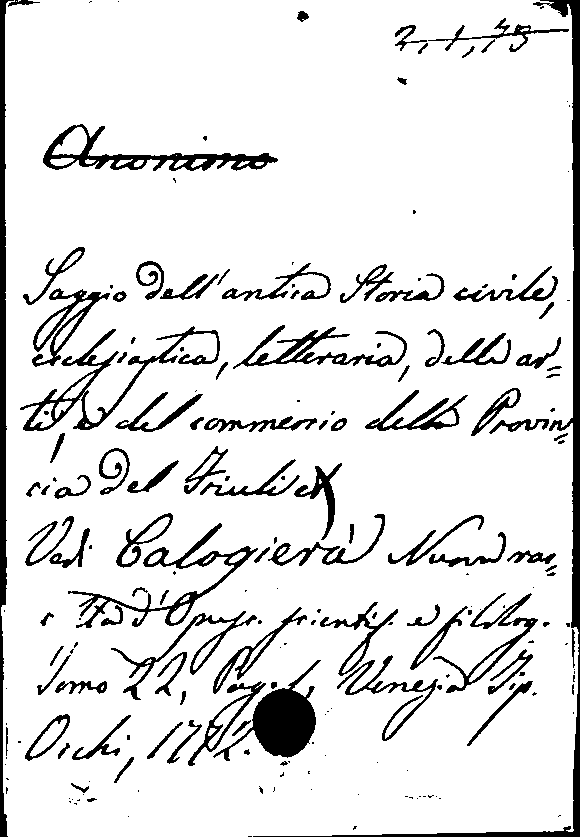 2, 1, 75
Anonimo
Saggio dell'antica Storia civile,
ecclesiastica, letteraria, delle ar=
ti, e del commercio della Provin=
cia del Friuli
Vedi Calogierà Nuova rac=
colta d'Opusc. scientif. e filolog.
Tomo 22, Pag. 1, Venezia Tip.
Occhi, 1772.